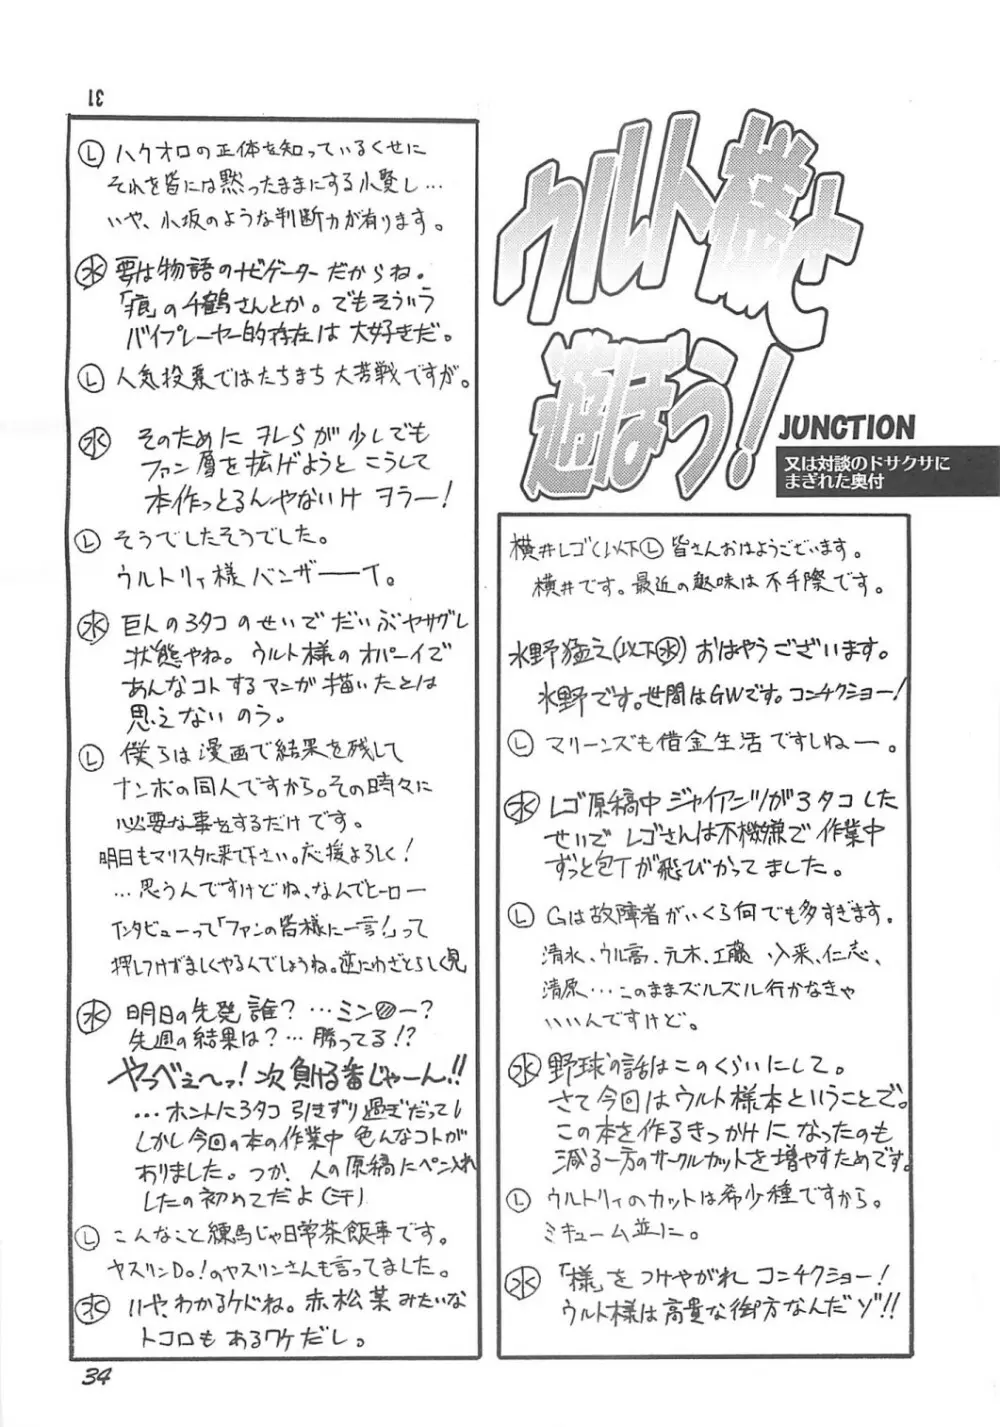 31
ウルト様と
遊ぼう!
JUNCTION
又は対談のドサクサに
まぎれた奥付
横井レゴ(以下Ⓛ) 皆さんおはようございます。
横井です。最近の趣味は不手際です。
水野猛之(以下㊌) おはやうございます。
水野です。世間はGWです。コンチクショー!
Ⓛ マリーンズも借金生活ですしねー。
㊌ レゴ原稿中ジャイアンツが3タコした
せいでレゴさんは不機嫌で作業中
ずっと包丁が飛びかってました。
Ⓛ Gは故障者がいくら何でも多すぎます。
清水、ウル高、元木、工藤、入来、仁志、
清原…このままズルズル行かなきゃ
いいんですけど。
㊌ 野球の話はこのくらいにして。
さて今回はウルト様本ということで。
この本を作るきっかけになったのも
減る一方のサークルカットを増やすためです。
Ⓛ ウルトリィのカットは希少種ですから。
ミキューム並に。
㊌ 「様」をつけやがれコンチクショー!
ウルト様は高貴な御方なんだゾ!!
Ⓛ ハクオロの正体を知っているくせに
それを皆には黙ったままにする小賢し…
いや、小坂のような判断力が有ります。
㊌ 要は物語のナビゲーターだからね。
「痕」の千鶴さんとか。でもそういう
バイプレーヤー的存在は大好きだ。
Ⓛ 人気投票ではたちまち大苦戦ですが。
㊌ そのためにヲレらが少しでも
ファン層を拡げようとこうして
本作っとるんやないけヲラー!
Ⓛ そうでしたそうでした。
ウルトリィ様バンザーーイ。
㊌ 巨人の3タコのせいでだいぶヤサグレ
状態やね。ウルト様のオパーイで
あんなコトするマンガ描いたとは
思えないのう。
Ⓛ 僕らは漫画で結果を残して
ナンボの同人ですから。その時々に
必要な事をするだけです。
明日もマリスタに来て下さい。応援よろしく!
…思うんですけどね、なんでヒーロー
インタビューって「ファンの皆様に一言!」って
押しつけがましくやるんでしょうね。逆にわざとらしく見
㊌ 明日の先発誰?…ミン〇ー?
先週の結果は?…勝ってる!?
やっべぇ〜っ!次負ける番じゃーん!!
…ホントに3タコ引きずり過ぎだってし
しかし今回の本の作業中色んなコトが
ありました。つか、人の原稿にペン入れ
したの初めてだよ(汗)
Ⓛ こんなこと練馬じゃ日常茶飯事です。
ヤスリンDo!のヤスリンさんも言ってました。
㊌ いや、わかるケドね。赤松葉みたいな
トコロもあるワケだし。
34